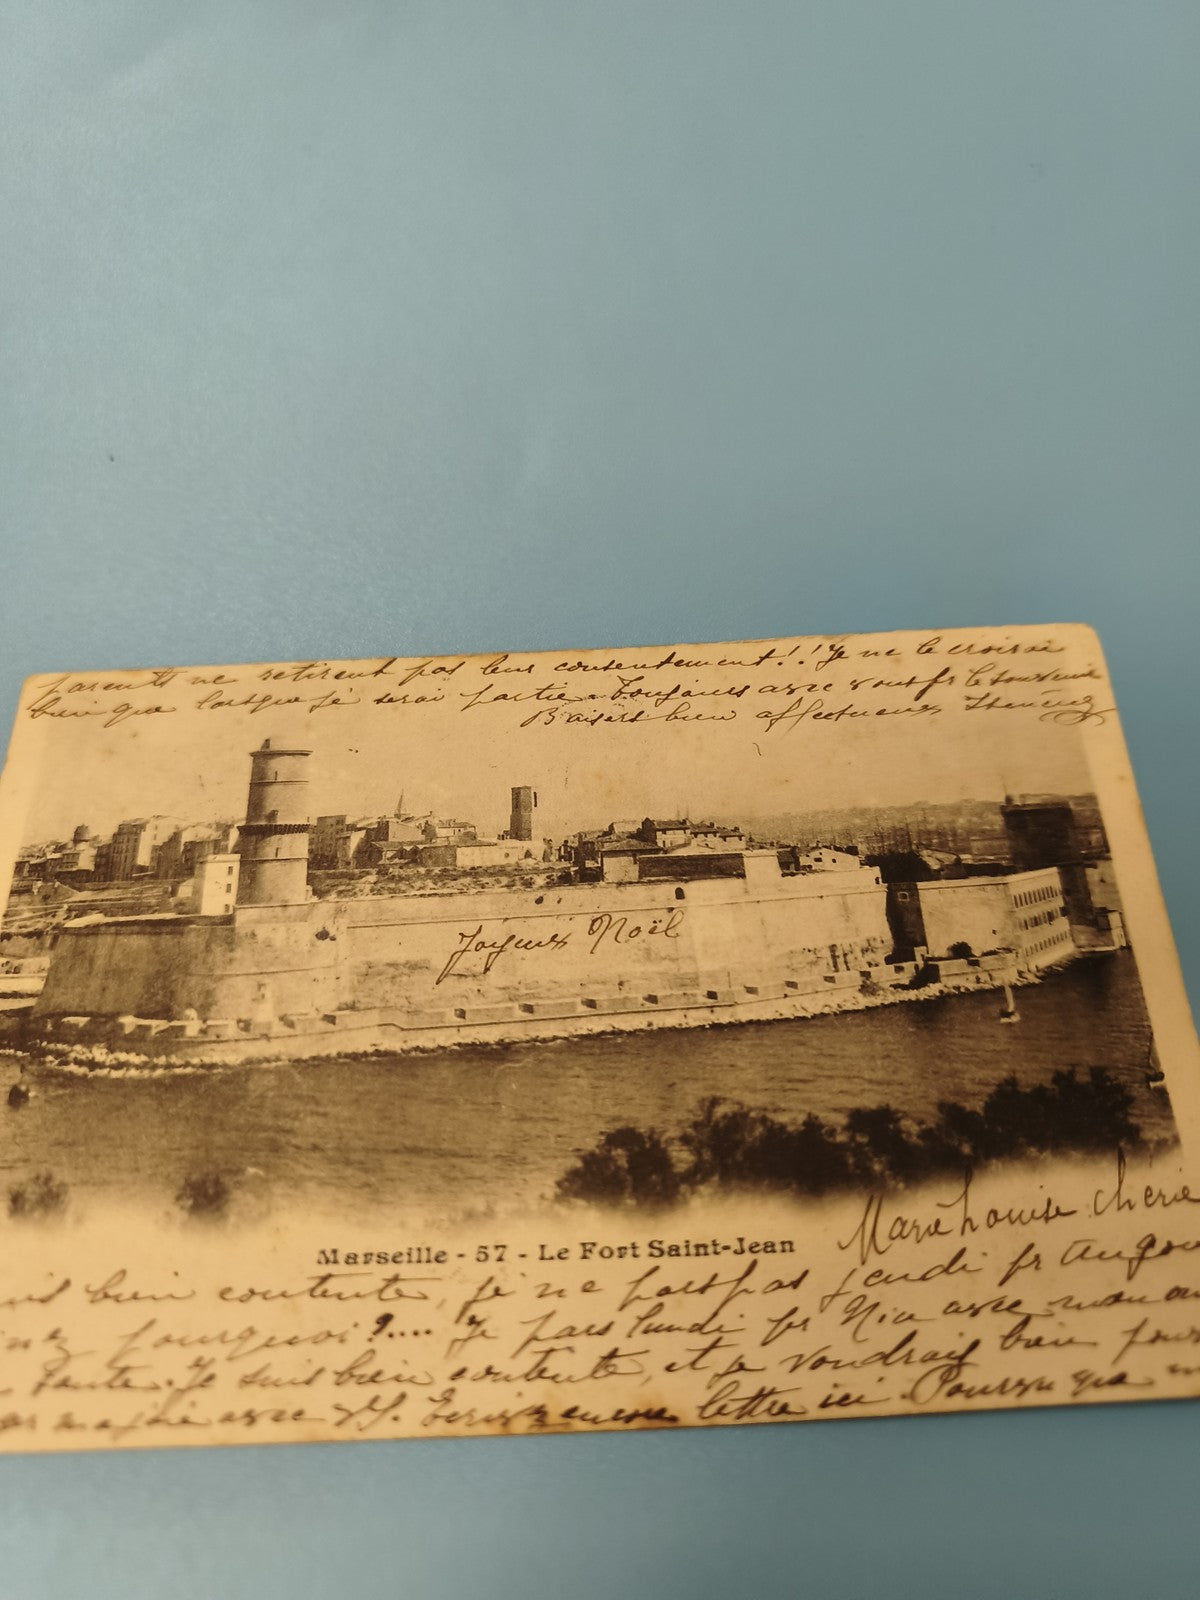 parents ne retirent pas leur consentement!! Je ne le croirai
bien que lorsque je serai partie. Toujours avec vous pr le souvenir
Baisers bien affectueux
Joyeux Noël
Marseille - 57 - Le Fort Saint-Jean
Marie Louise chérie
bien contente, je ne pars pas jeudi pr
pourquoi ?.... Je pars lundi pr Nice avec mon
Tante. Je suis bien contente, et je voudrais bien
ma joie avec vs. Ecrivez encore lettre ici. Pourvu que